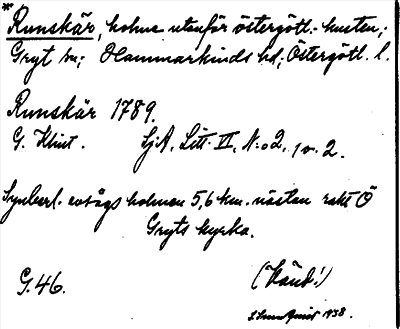 *Runskär, holme utanför östergötl.-kusten,;
Gryt sn; Hammarkinds hd; Östergötl. l.
Runskär 1789.
G. Klint. SjA, Litt. II, N:o 2, 1 o. 2.
Synbarl. avsågs holmen 5,6 km. nästan rakt Ö
Gryts kyrka.
G. 46. (Känt!)
1938.